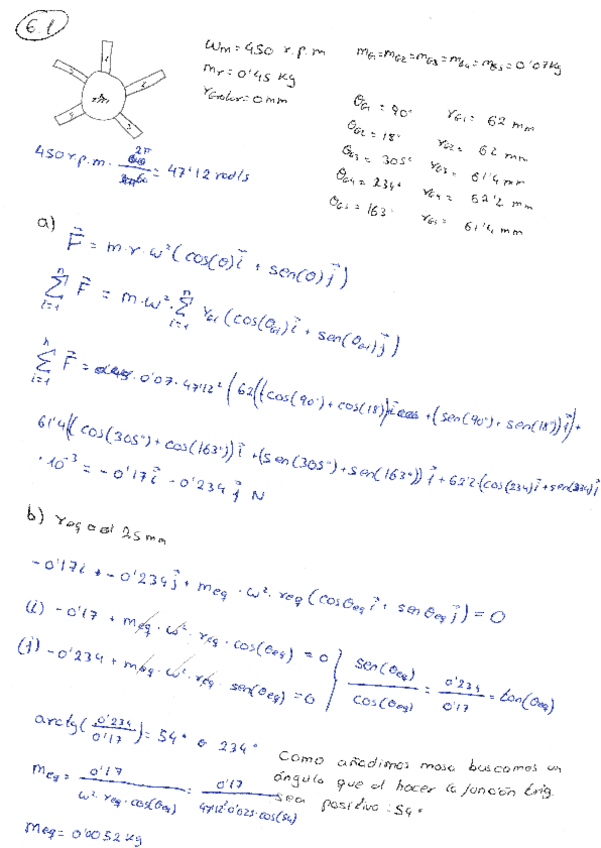 6.1
ωm = 450 r.p.m
mr = 0'45 kg
rGrotor = 0 mm
mG1 = mG2 = mG3 = mG4 = mG5 = 0'07 kg
θG1 = 90° rG1 = 62 mm
θG2 = 18° rG2 = 62 mm
θG3 = 305° rG3 = 61'4 mm
θG4 = 234° rG4 = 62'2 mm
θG5 = 163° rG5 = 61'4 mm
450 r.p.m. · 2π/60 = 47'12 rad/s
a) F⃗ = m·r·ω² (cos(θ) i⃗ + sen(θ) j⃗)
∑ⁿᵢ₌₁ F⃗ = m·ω² · ∑ⁿᵢ₌₁ rGi (cos(θGi) i⃗ + sen(θGi) j⃗)
∑ⁿᵢ₌₁ F⃗ = 0'07·47'12² (62((cos(90°) + cos(18)) i⃗ + (sen(90°) + sen(18°)) j⃗) +
61'4((cos(305°) + cos(163°)) i⃗ + (sen(305°) + sen(163°)) j⃗ + 62'2·(cos(234) i⃗ + sen(234) j⃗
· 10⁻³ = -0'17 i⃗ - 0'234 j⃗ N
b) req = 25 mm
-0'17 i + -0'234 j⃗ + meq · ω² · req (cosθeq i⃗ + senθeq j⃗) = 0
(i) -0'17 + meq · ω² · req · cos(θeq) = 0
(j) -0'234 + meq · ω² · req · sen(θeq) = 0
sen(θeq)/cos(θeq) = 0'234/0'17 = tan(θeq)
arctg(0'234/0'17) = 54° o 234°
Como añadimos masa buscamos un
ángulo que al hacer la función trig.
sea positivo: 54°
meq = 0'17/(ω² · req · cos(θeq)) = 0'17/(47'12²·0'025·cos(54))
meq = 0'0052 kg